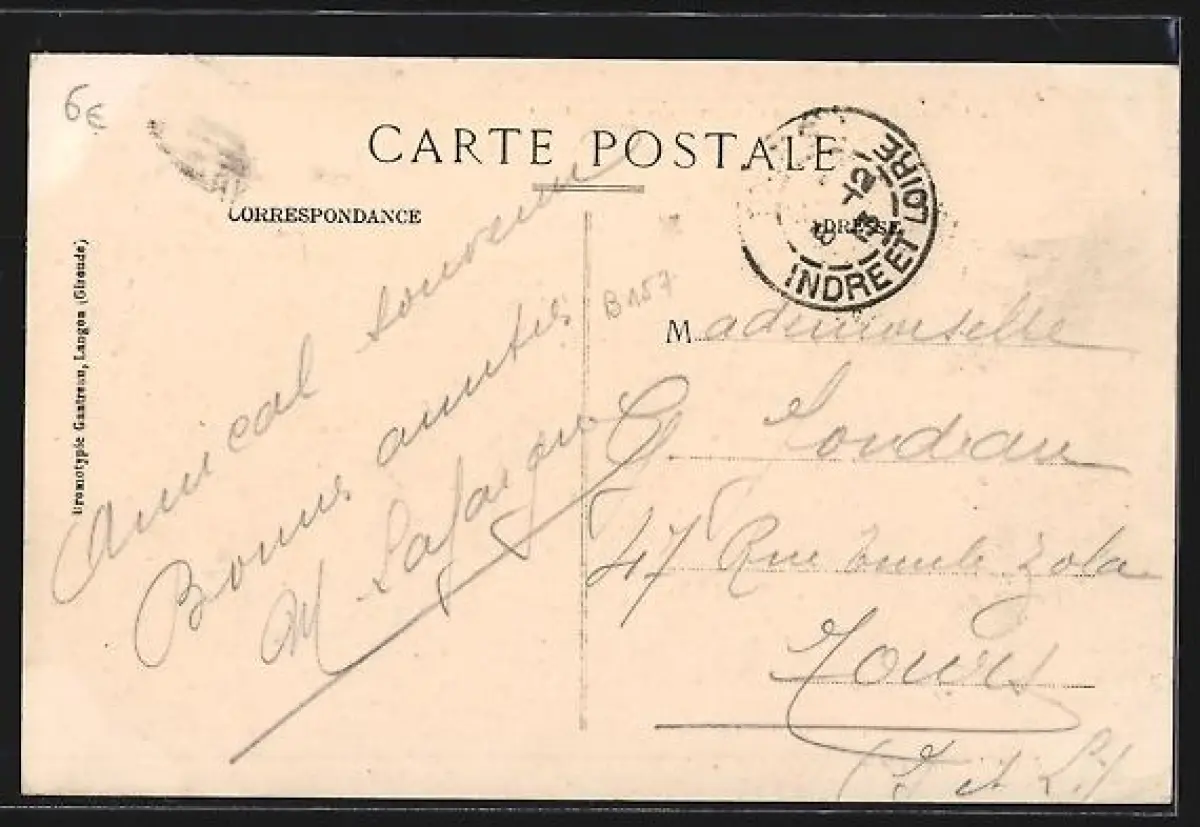 6€
CARTE POSTALE
CORRESPONDANCE
ADRESSE
INDRE ET LOIRE
Bromotypie Gautreau, Langon (Gironde)
B157
Amical souvenir
Bonnes amitiés
M Lafargue
Mademoiselle
G.
47 Rue Emile Zola
Tours
(I et L.)